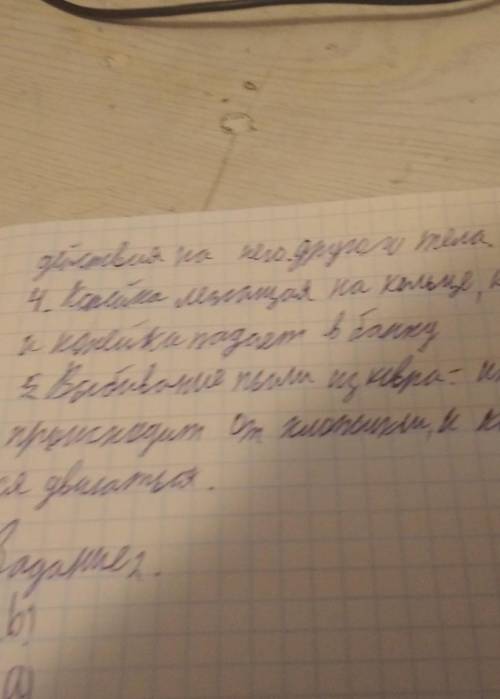 действия на него другого тела
4. Копейка лежащая на кольце,
и копейка падает в банку
5. Выбивание пыли из ковра -
происходит от хлопушки, и
ся двигаться.
Задание 2.
b)
a)